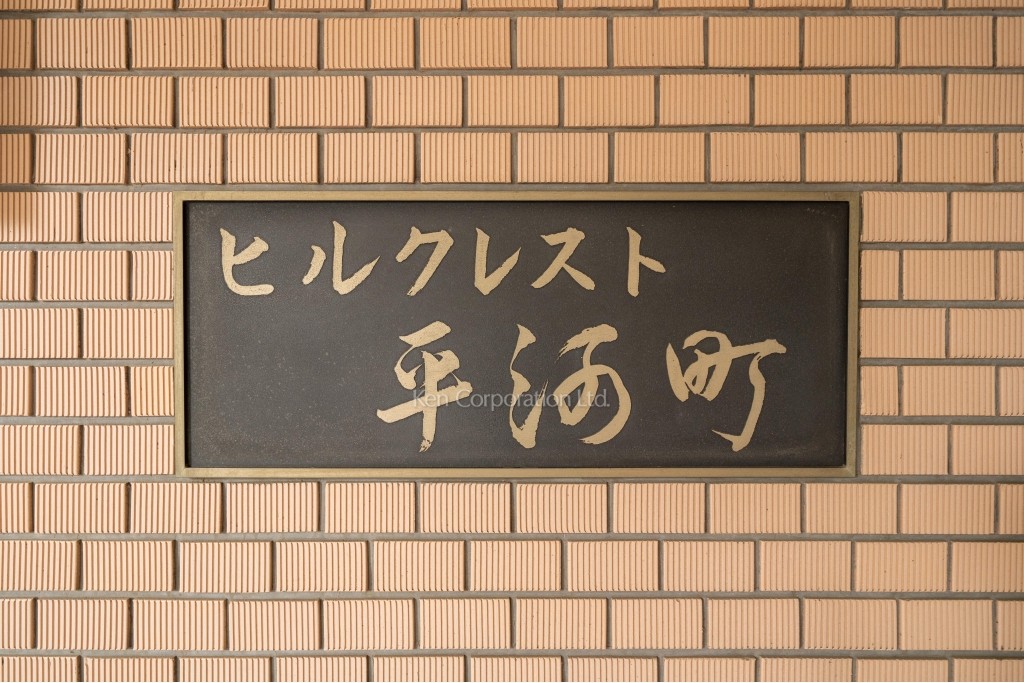 ヒルクレスト
平河町
Ken Corporation Ltd.